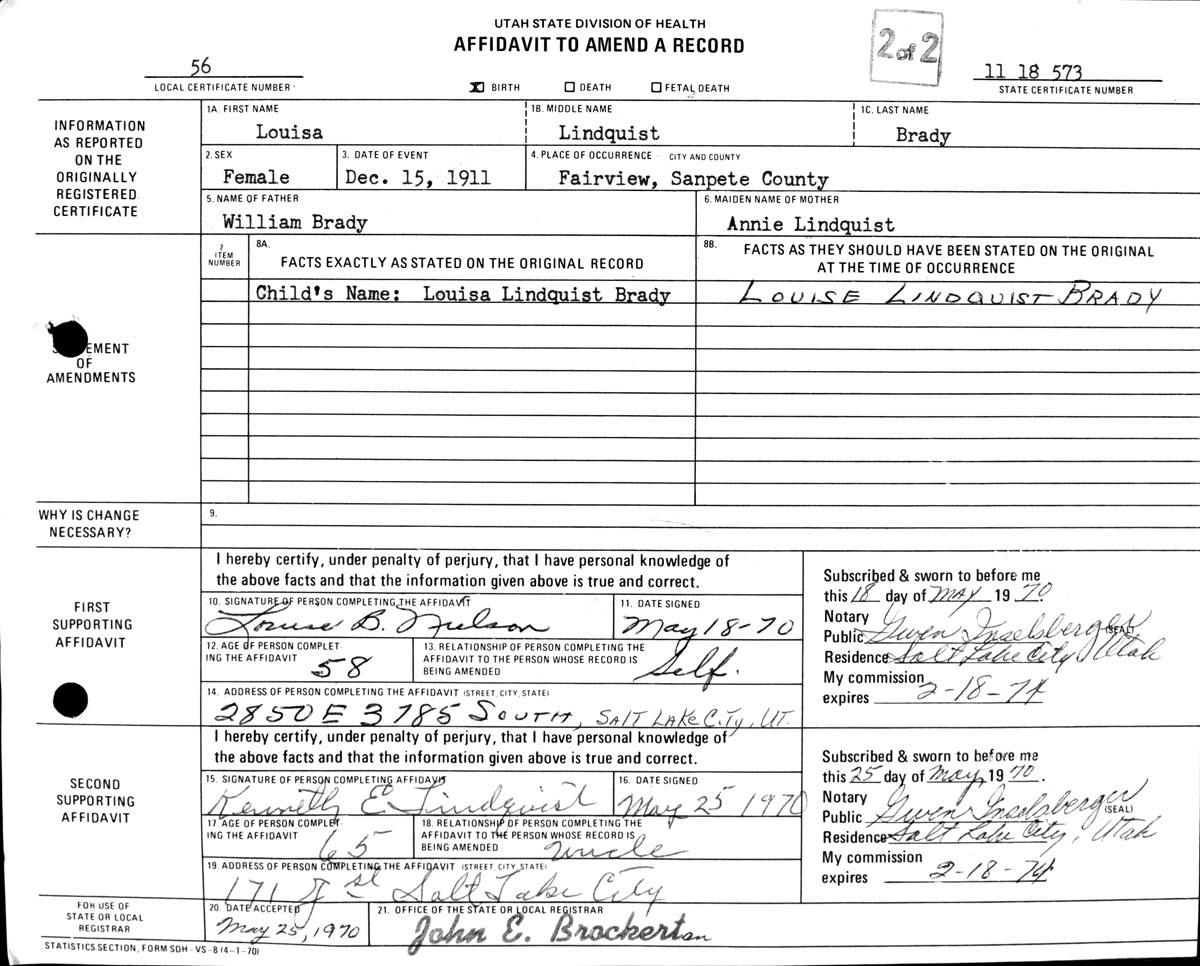 UTAH STATE DIVISION OF HEALTH
AFFIDAVIT TO AMEND A RECORD
2 of 2
56
LOCAL CERTIFICATE NUMBER
X BIRTH DEATH FETAL DEATH
11 18 573
STATE CERTIFICATE NUMBER
INFORMATION AS REPORTED ON THE ORIGINALLY REGISTERED CERTIFICATE
1A. FIRST NAME 1B. MIDDLE NAME 1C. LAST NAME
Louisa Lindquist Brady
2. SEX 3. DATE OF EVENT 4. PLACE OF OCCURRENCE CITY AND COUNTY
Female Dec. 15, 1911 Fairview, Sanpete County
5. NAME OF FATHER 6. MAIDEN NAME OF MOTHER
William Brady Annie Lindquist
7 ITEM NUMBER
8A. FACTS EXACTLY AS STATED ON THE ORIGINAL RECORD
8B. FACTS AS THEY SHOULD HAVE BEEN STATED ON THE ORIGINAL
AT THE TIME OF OCCURRENCE
Child's Name: Louisa Lindquist Brady LOUISE LINDQUIST BRADY
EMENT
OF
AMENDMENTS
WHY IS CHANGE
NECESSARY?
9.
FIRST
SUPPORTING
AFFIDAVIT
I hereby certify, under penalty of perjury, that I have personal knowledge of
the above facts and that the information given above is true and correct.
10. SIGNATURE OF PERSON COMPLETING THE AFFIDAVIT 11. DATE SIGNED
Louise B. Nielson May 18-70
12. AGE OF PERSON COMPLET
ING THE AFFIDAVIT 58
13. RELATIONSHIP OF PERSON COMPLETING THE
AFFIDAVIT TO THE PERSON WHOSE RECORD IS
BEING AMENDED Self.
14. ADDRESS OF PERSON COMPLETING THE AFFIDAVIT (STREET, CITY, STATE)
2850 E 3785 SOUTH, SALT LAKE CITY, UT.
Subscribed & sworn to before me
this 18 day of MAY 19 70
Notary
Public Gwen Inselsberger (SEAL)
Residence Salt Lake City, Utah
My commission
expires 2-18-74
SECOND
SUPPORTING
AFFIDAVIT
I hereby certify, under penalty of perjury, that I have personal knowledge of
the above facts and that the information given above is true and correct.
15. SIGNATURE OF PERSON COMPLETING AFFIDAVIT 16. DATE SIGNED
Kenneth E Lindquist May 25 1970
17. AGE OF PERSON COMPLET
ING THE AFFIDAVIT 65
18. RELATIONSHIP OF PERSON COMPLETING THE
AFFIDAVIT TO THE PERSON WHOSE RECORD IS
BEING AMENDED uncle
19. ADDRESS OF PERSON COMPLETING THE AFFIDAVIT (STREET, CITY, STATE)
171 st Salt Lake City
Subscribed & sworn to before me
this 25 day of May, 19 70.
Notary
Public Gwen Inselsberger (SEAL)
Residence Salt Lake City, Utah
My commission
expires 2-18-74
FOR USE OF
STATE OR LOCAL
REGISTRAR
20. DATE ACCEPTED 21. OFFICE OF THE STATE OR LOCAL REGISTRAR
May 25, 1970 John E. Brockert an
STATISTICS SECTION, FORM SDH-VS-8 (4-1-70)